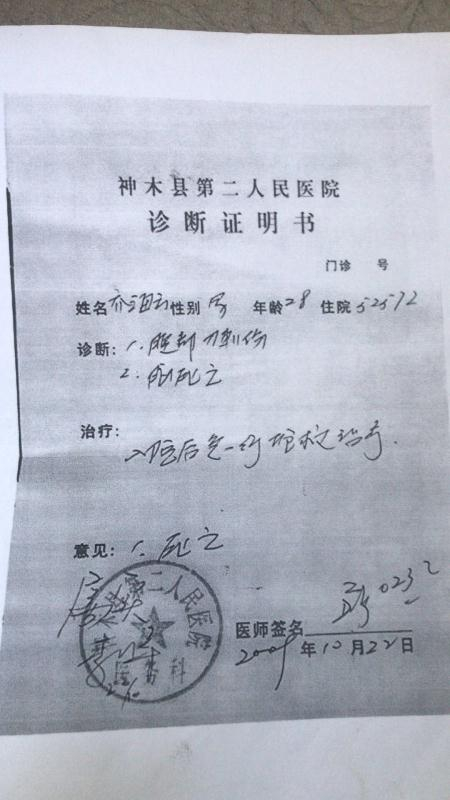 神木县第二人民医院
诊断证明书
门诊 号
姓名 性别 男 年龄 28 住院 52572
诊断：1. 腹部刀刺伤
2. 死亡
治疗：
入院后急 抢救治疗.
意见：1. 死亡
第二人民医院
医务科
0232
医师签名
2009年10月22日